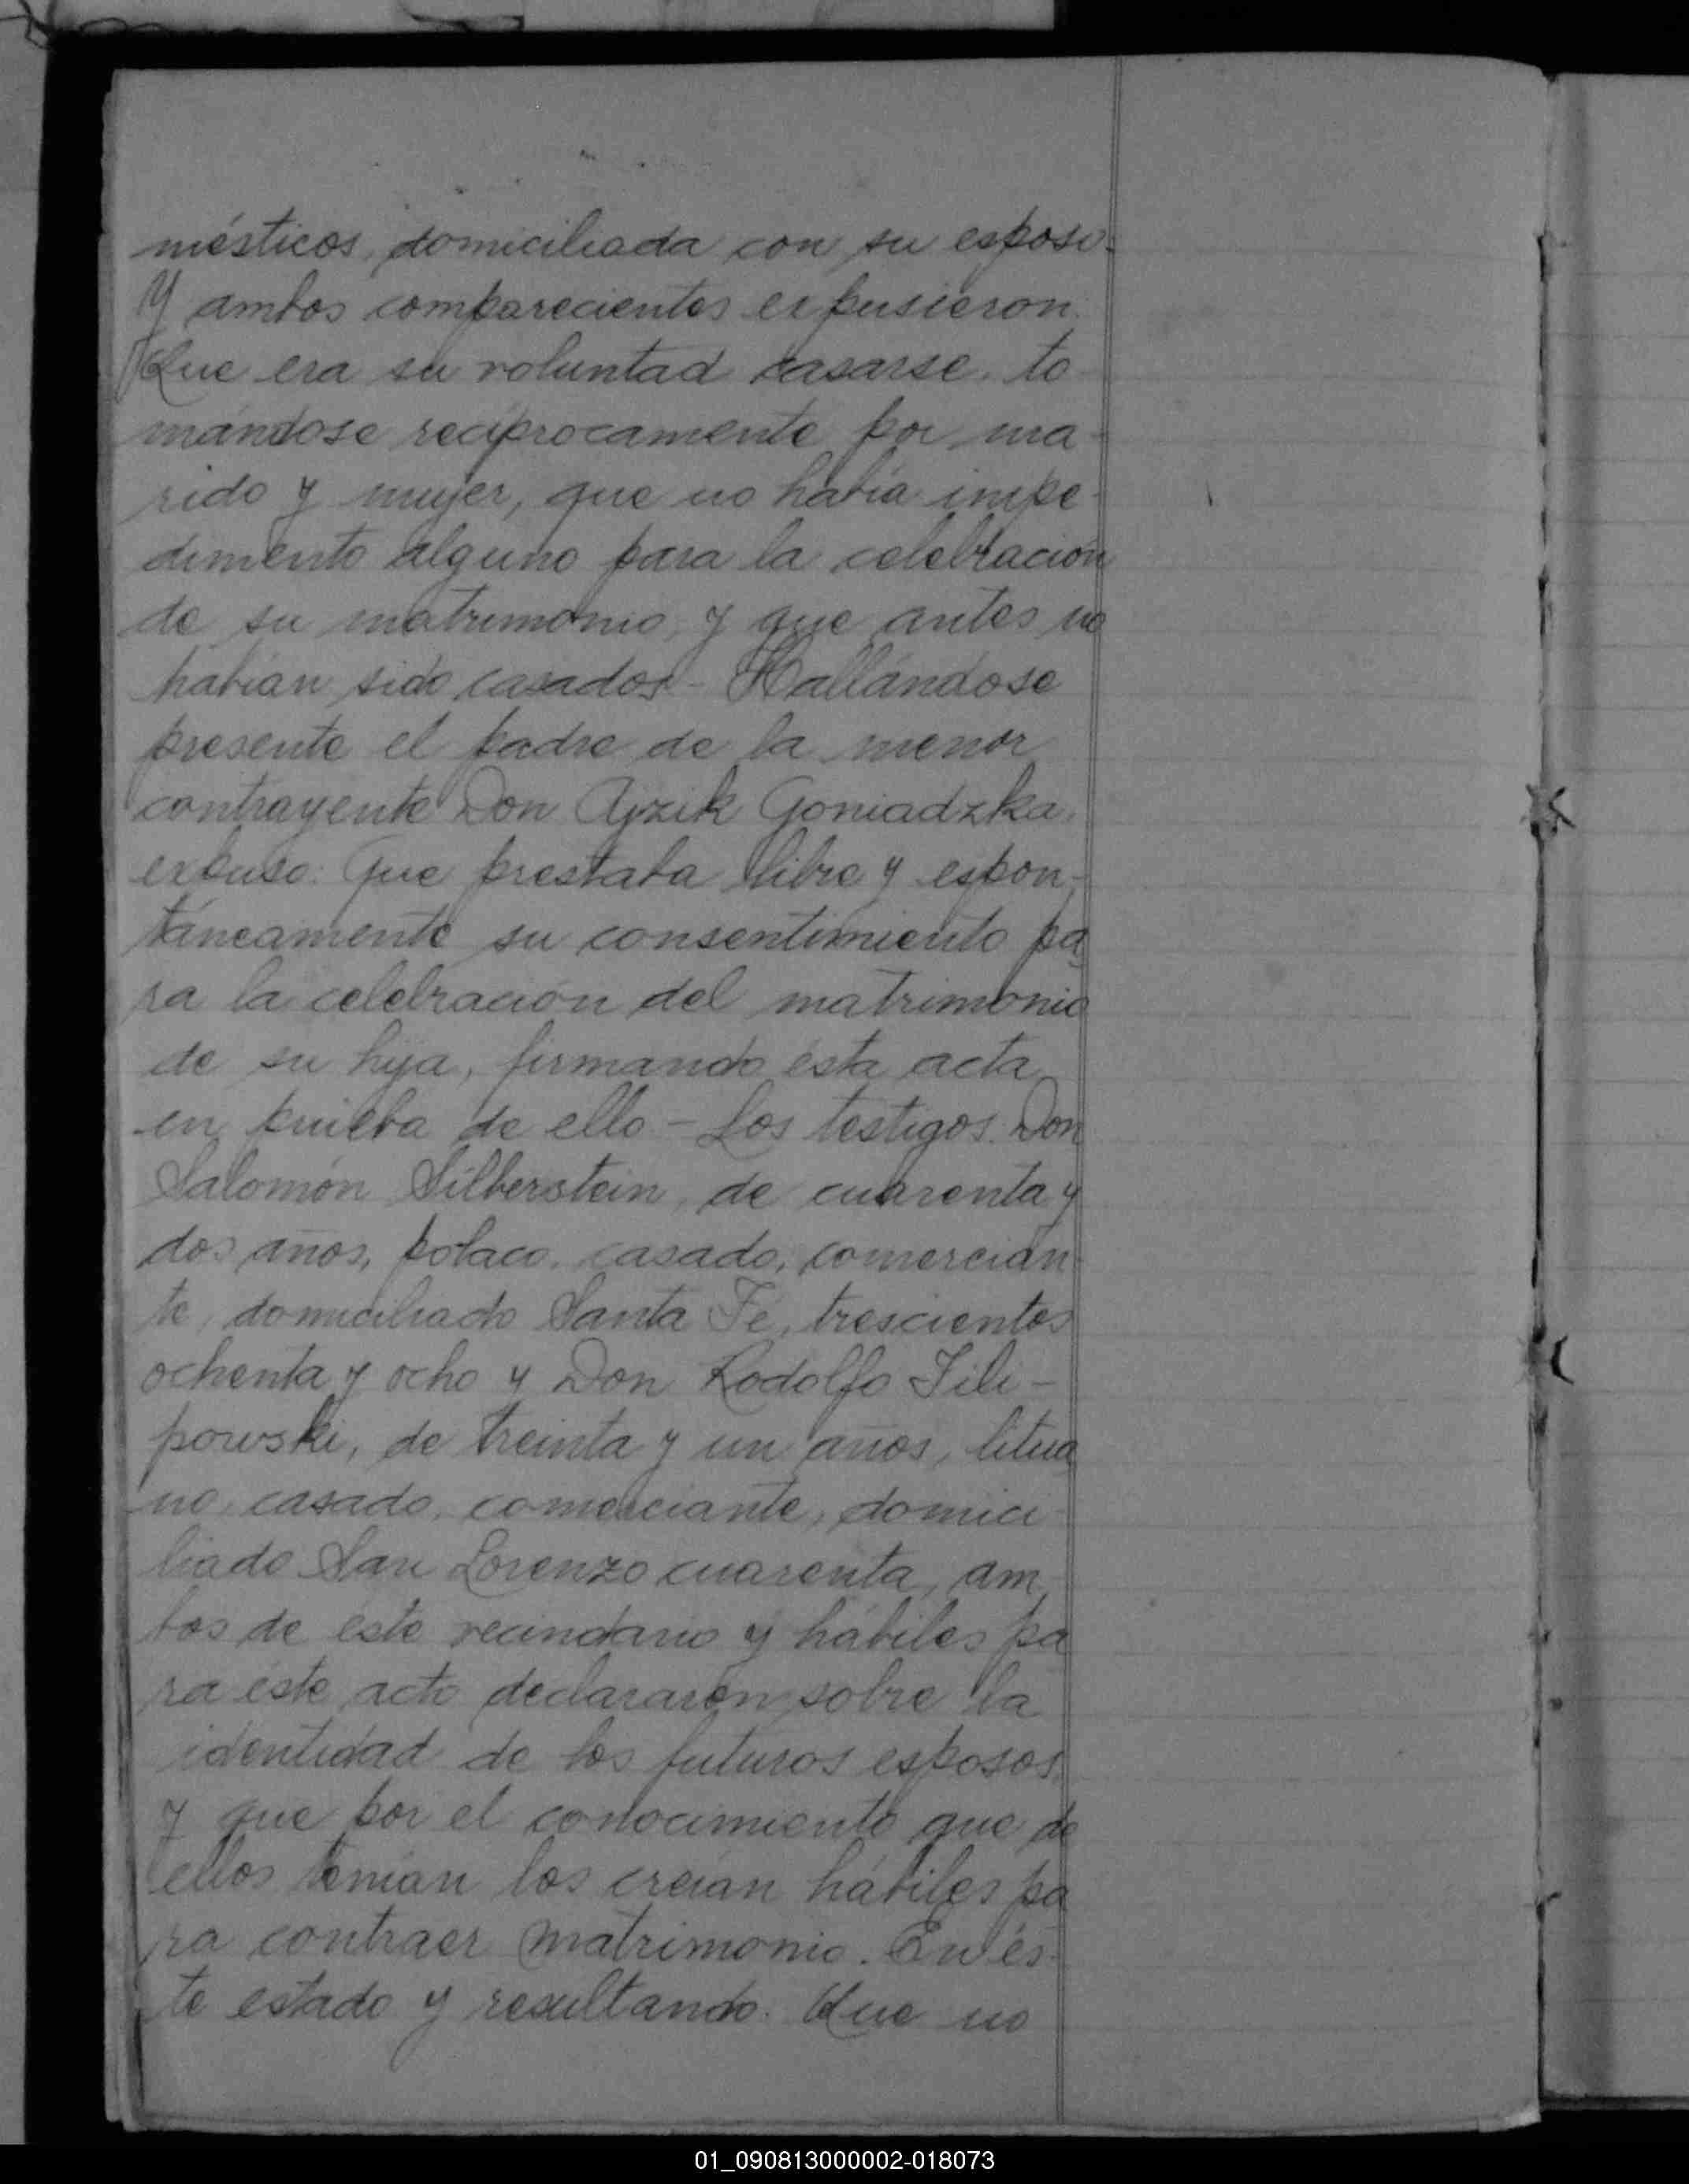 mésticos, domiciliada con su esposo.
Y ambos comparecientes expusieron:
Que era su voluntad casarse, to-
mándose recíprocamente por ma-
rido y mujer, que no había impe-
dimento alguno para la celebración
de su matrimonio, y que antes no
habían sido casados - Hallándose
presente el padre de la menor
contrayente Don Ajzik Goniadzka,
expuso: Que prestaba libre y espon-
táneamente su consentimiento pa-
ra la celebración del matrimonio
de su hija, firmando ésta acta
en prueba de ello - Los testigos Don
Salomón Silberstein, de cuarenta y
dos años, polaco, casado, comercian-
te, domiciliado Santa Fé, trescientos
ochenta y ocho y Don Rodolfo Fili-
powski, de treinta y un años, litua
no, casado, comerciante, domici-
liado San Lorenzo cuarenta, am-
bos de éste vecindario y hábiles pa
ra éste acto declararon sobre la
identidad de los futuros esposos,
y que por el conocimiento que de
ellos tenían los creían hábiles pa
ra contraer matrimonio. En és-
te estado y resultando: Que no
01_090813000002-018073